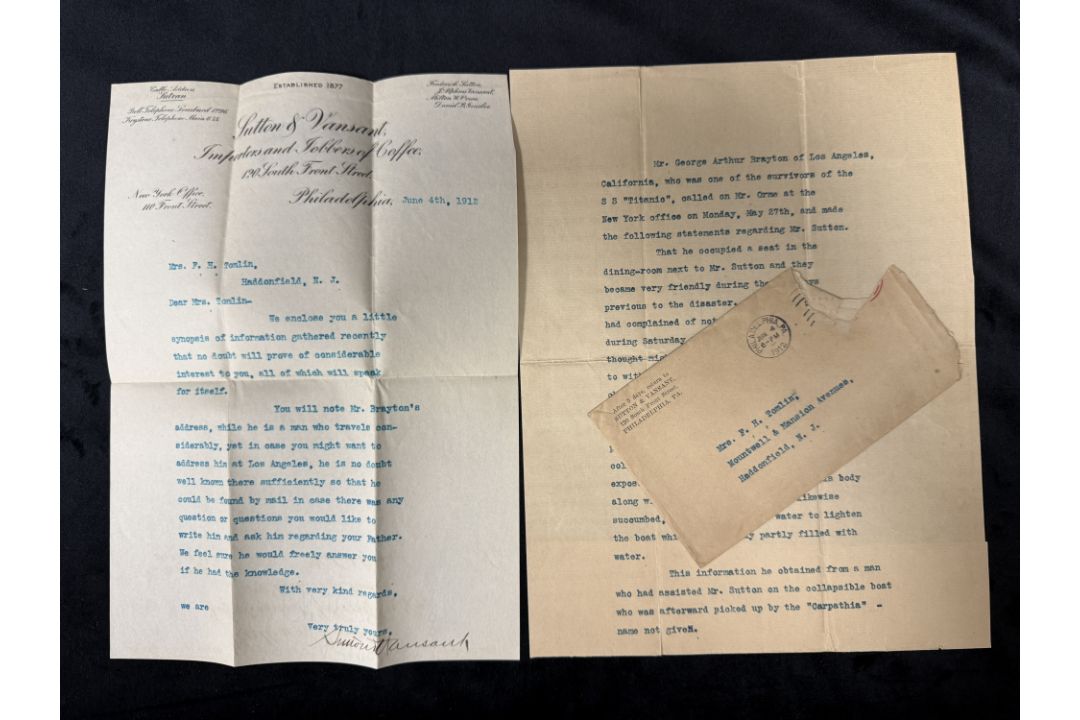 ESTABLISHED 1877
Cable Address
Sutvan
New York Office,
110 Front Street.
Frederick Sutton,
J. Alpheus Vansant,
Sutton & Vansant,
Importers and Jobbers of Coffee,
120 South Front Street,
Philadelphia, June 4th, 1912
Mrs. F. H. Tomlin,
Haddonfield, N. J.
Dear Mrs. Tomlin-
We enclose you a little
synopsis of information gathered recently
that no doubt will prove of considerable
interest to you, all of which will speak
for itself.
You will note Mr. Brayton's
address, while he is a man who travels con-
siderably, yet in case you might want to
address him at Los Angeles, he is no doubt
well known there sufficiently so that he
could be found by mail in case there was any
question or questions you would like to
write him and ask him regarding your Father.
We feel sure he would freely answer you
if he had the knowledge.
With very kind regards,
we are
Very truly yours,
Sutton & Vansant
Mr. George Arthur Brayton of Los Angeles,
California, who was one of the survivors of the
S S "Titanic", called on Mr. Orme at the
New York office on Monday, May 27th, and made
the following statements regarding Mr. Sutton.
That he occupied a seat in the
dining-room next to Mr. Sutton and they
became very friendly during the
previous to the disaster.
had complained of not
during Saturday
thought
to
along
body
likewise
succumbed, water to lighten
the boat partly filled with
water.
This information he obtained from a man
who had assisted Mr. Sutton on the collapsible boat
who was afterward picked up by the "Carpathia" -
name not giveN.
PHILADELPHIA, PA.
JUN 4
6-PM
1912
After 5 days, return to
SUTTON & VANSANT,
120 South Front Street,
PHILADELPHIA, PA.
Mrs. F. H. Tomlin,
Mountwell & Mansion Avenues,
Haddonfield, N. J.